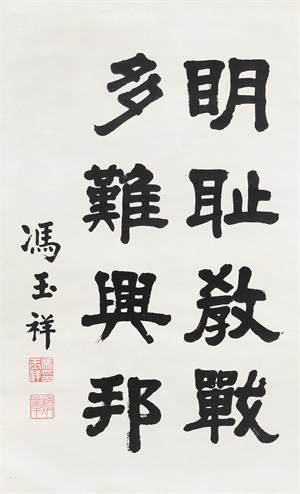 明耻教戰
多難興邦
馮玉祥